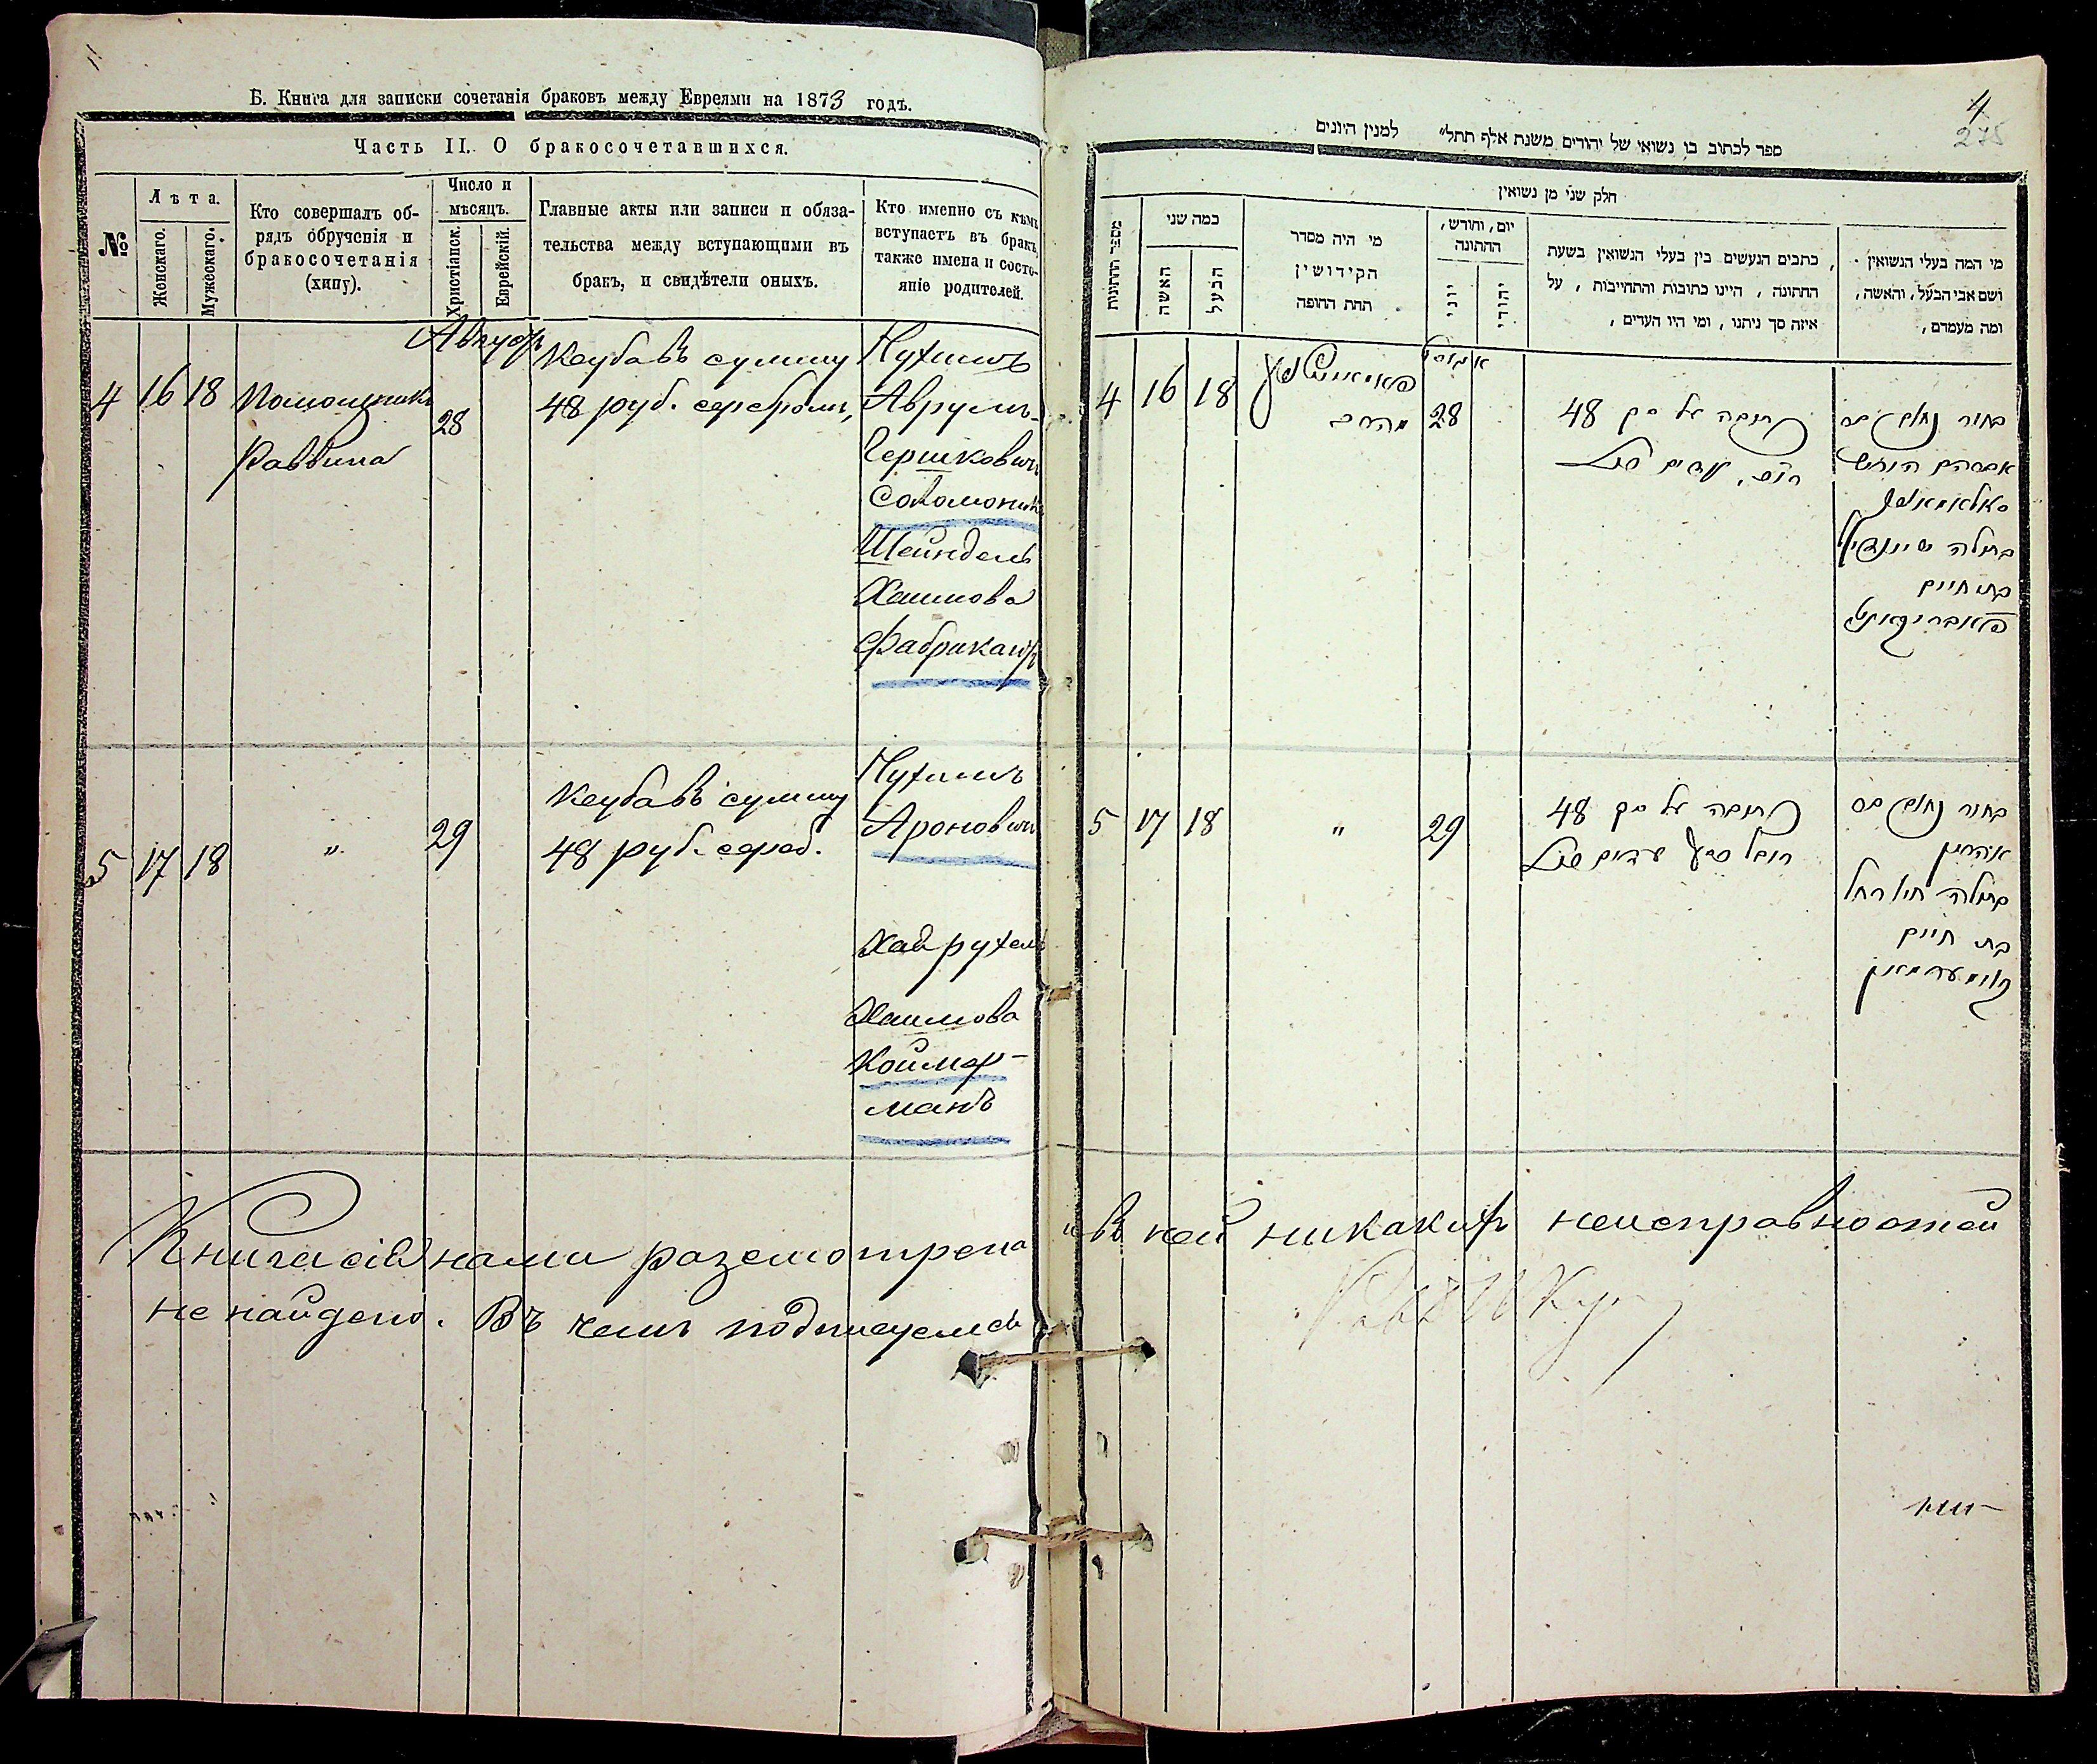 Б. Книга для записки сочетанія браковъ между Евреями на 1873 годъ.
Часть II. О бракосочетавшихся.
№
Лѣта.
Женскаго.
Мужескаго.
Кто совершалъ об-
рядъ обрученія и
бракосочетанія
(хипу).
Число и
мѣсяцъ.
Христіанск.
Еврейскій.
Главные акты или записи и обяза-
тельства между вступающими въ
бракъ, и свидѣтели оныхъ.
Кто именно съ кѣмъ
вступаетъ въ бракъ
также имена и состо-
яніе родителей.
Августъ
4 16 18
Помощникъ
Раввина
28
Кеуба въ сумму
48 руб. серебромъ,
Нухимъ
Аврумъ-
Гершковичъ
Соломоникъ
Шейндель
Хаимова
Фабрикантъ
5 17 18 " 29
Кеуба въ сумму
48 руб. сереб.
Нухимъ
Ароновичъ
Хая рухель
Хаимова
Коймер-
манъ
Книга сія нами разсмотрена
не найдено. Въ чемъ подписуемся
4
275
ספר לכתוב בו נשואי של יהודים משנת אלף תתל״ למנין היונים
חלק שני מן נשואין
מספר החתונות
כמה שני
האשה
הבעל
מי היה מסדר
הקידושין
תחת החופה
יום, וחודש,
החתונה
יוני
יהודי
כתבים הנעשים בין בעלי הנשואין בשעת
החתונה, היינו כתובות והתחייבות, על
איזה סך ניתנו, ומי היו העדים,
מי המה בעלי הנשואין
ושם אבי הבעל, והאשה,
ומה מעמדם,
4 16 18
28
כתובה על סך 48
בחור נחום בס
אברהם הירש
סאלאמאניק
בתולה שיינדיל
בת חיים
פאבריקאנט
5 17 18 " 29
כתובה על סך 48
רובל כסף עדים
בחור נחום בס
אהרון
בתולה חי׳ רחל
בת חיים
קוימערמאן
и въ ней никакихъ неисправностей